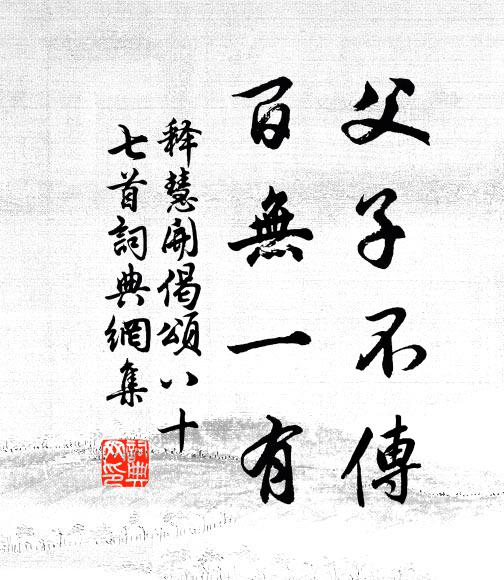 父子不傳
百無一有
释慧開偈頌八十
七首詞典網集
詞典網印